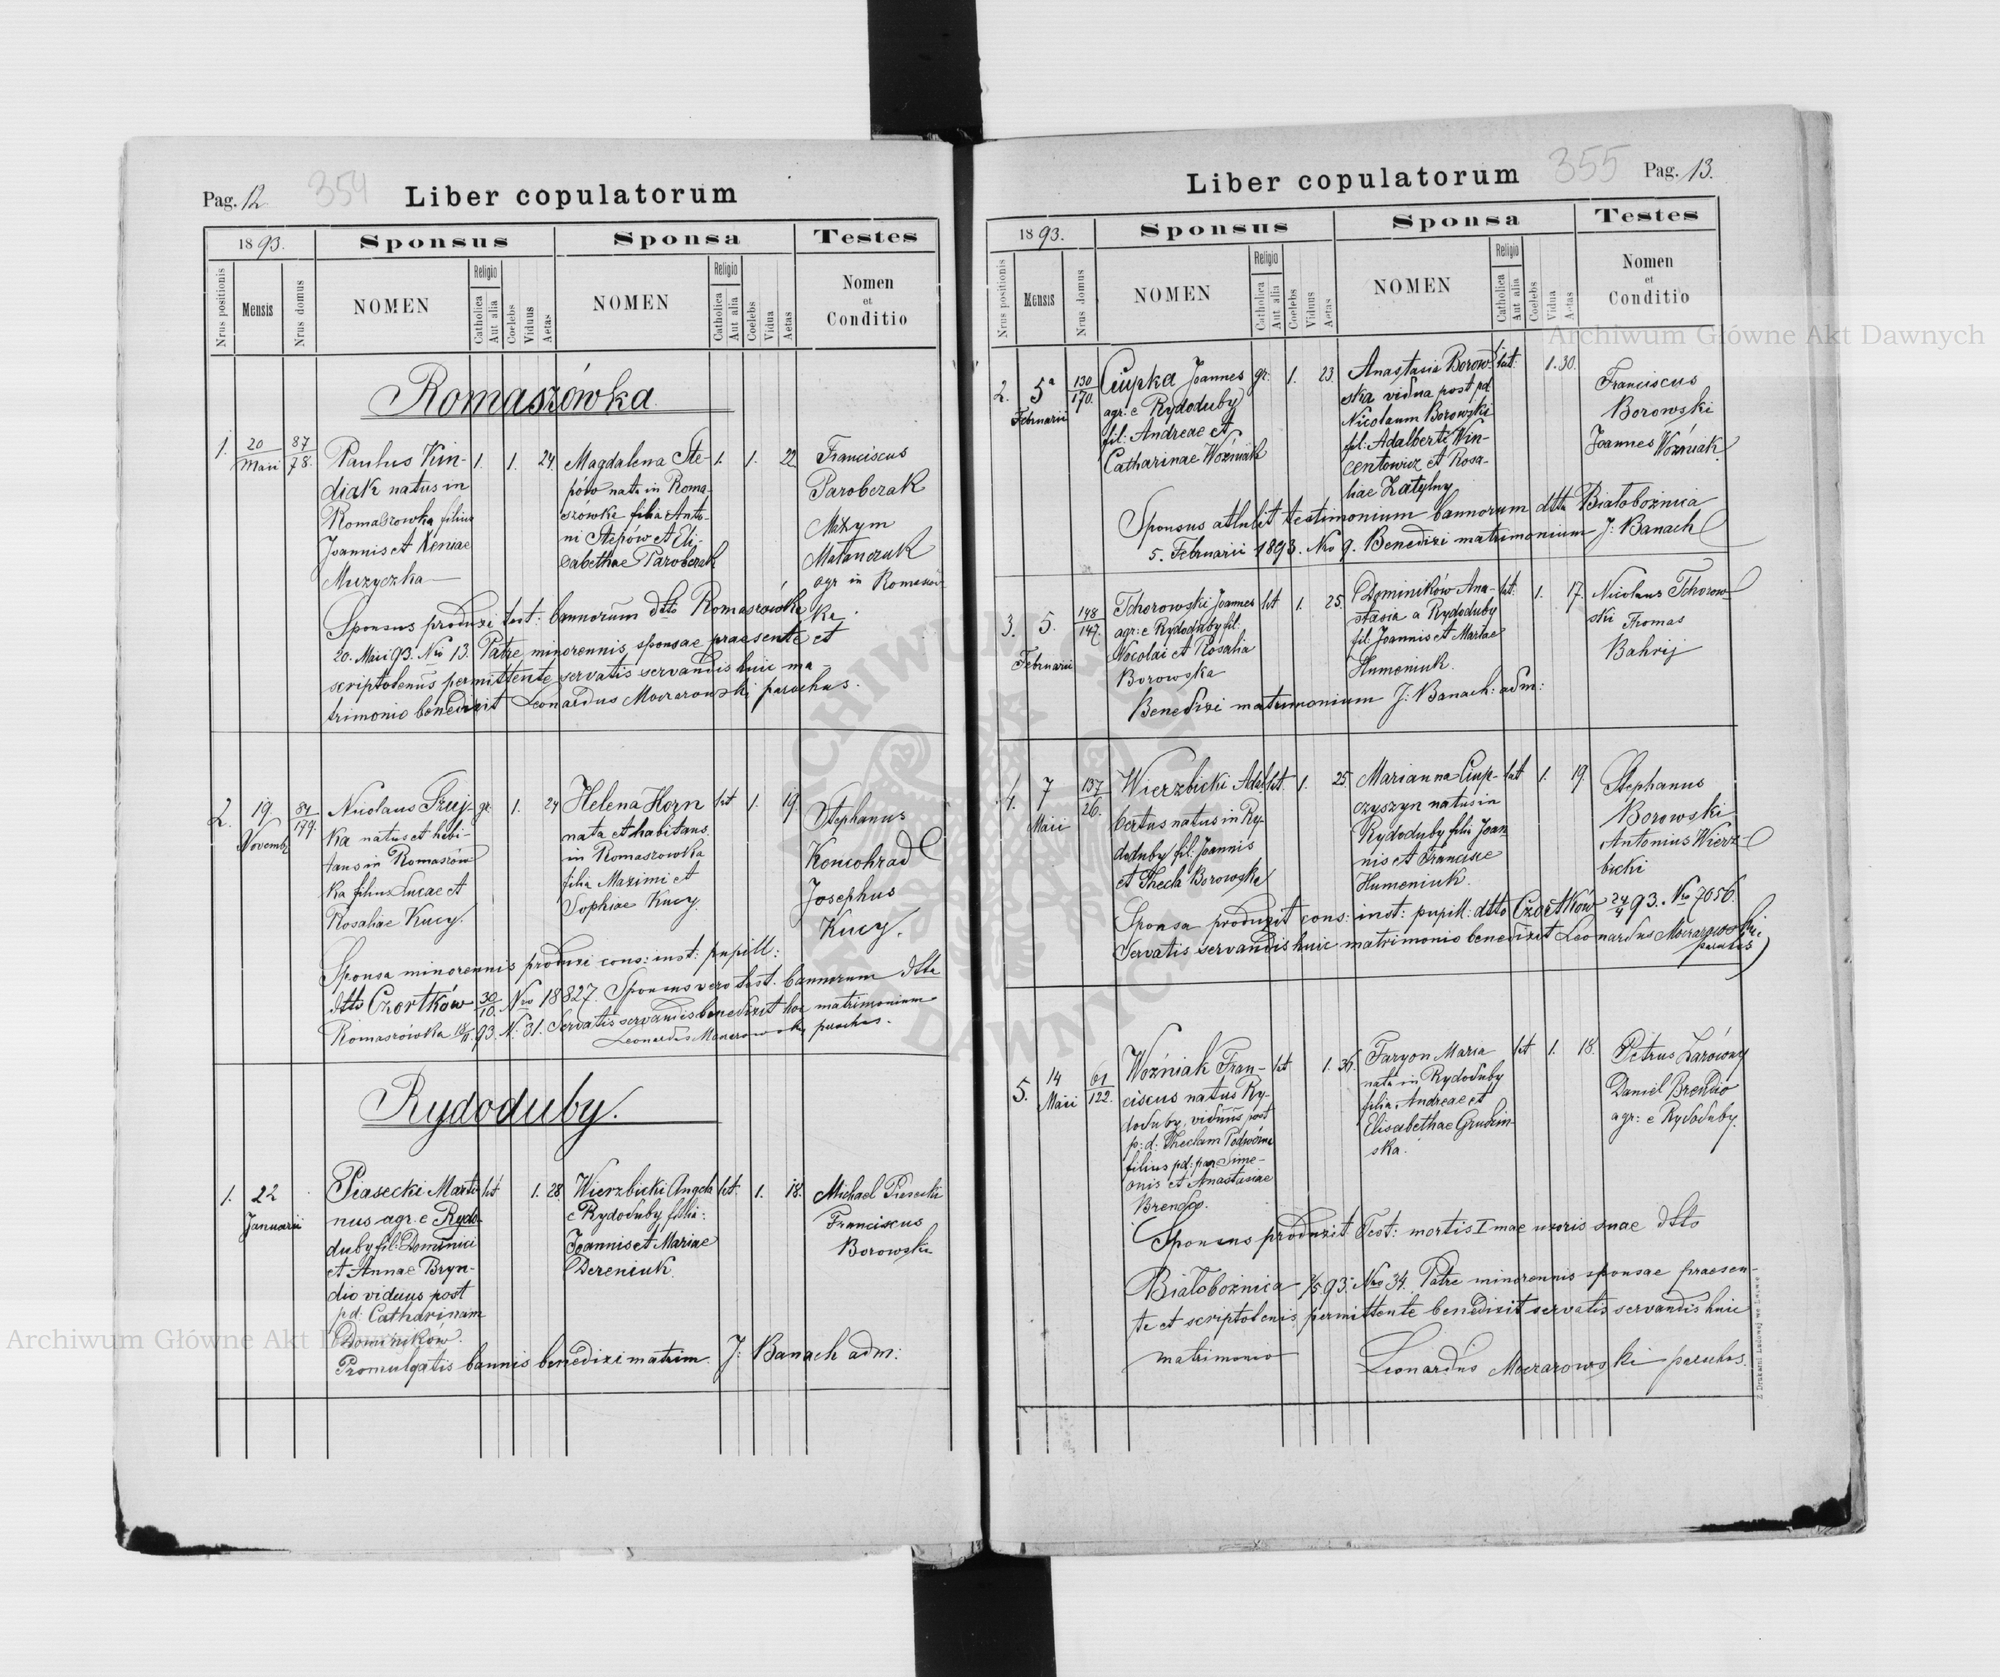 Pag. 12
354
Liber copulatorum
1893.
Sponsus
Sponsa
Testes
Nrus positionis
Mensis
Nrus domus
NOMEN
Religio
Catholica
Aut alia
Coelebs
Viduus
Aetas
NOMEN
Religio
Catholica
Aut alia
Coelebs
Vidua
Aetas
Nomen
et
Conditio
Romaszówka
1. 20 Maii 87/78.
Paulus Kin-
diak natus in
Romaszowka filius
Joannis et Xeniae
Muzyczka
1. 1. 24.
Magdalena Ste-
pów nata in Roma-
szowka filia Anto-
ni Stepów et Eli-
sabethae Parobczak
1. 1. 22
Franciscus
Parobczak
Maxym
Matanczuk
agr in Romaszów-
ka
Sponsus produxi test: bannorum dtto Romaszówka
20. Maii 93. Nro 13. Patre minorennis sponsae praesente et
scriptotenus permittente servatis servandis huic ma-
trimonio benedixit Leonardus Moczarowski parochus.
2. 19 Novembr 87/179.
Nicolaus
ka natus et habi-
tans in Romaszów
ka filius Lucae et
Rosaliae Kucy.
gr. 1. 24
Helena Horn
nata et habitans
in Romaszowka
filia Maximi et
Sophiae Kucy.
lat 1. 19.
Stephanus
Josephus
Kucy.
Sponsa minorennis produxi cons: inst: pupill:
dtto Czortków 30/10. Nro 18827. Sponsus vero test. bannorum dtto
Romaszówka 93. N. 31. Servatis servandis benedixit hoc matrimonium
Leonardus Moczarowski parochus.
Rydoduby.
1. 22 Januarii
Piasecki Marti
nus agr. e Rydo-
duby fil: Dominici
et Annae Bryn-
dio viduus post
pd. Catharinam
Dominików.
lat 1. 28.
Wierzbicki Angela
e Rydoduby filia:
Joannis et Mariae
Dereniuk.
lat. 1. 18.
Michael Piasecki
Franciscus
Borowski
Promulgatis bannis benedixi matrim. J: Banach adm:
Liber copulatorum
355
Pag. 13.
1893.
Sponsus
Sponsa
Testes
Nrus positionis
Mensis
Nrus domus
NOMEN
Religio
Catholica
Aut alia
Coelebs
Viduus
Aetas
NOMEN
Religio
Catholica
Aut alia
Coelebs
Vidua
Aetas
Nomen
et
Conditio
2. 5a Februarii 130/170.
Ciupka Joannes
agr: e Rydoduby
fil: Andreae et
Catharinae Woźniak
gr. 1. 23.
Anastasia Borow-
ska vidua post pd
Nicolaum Borowski
fil: Adalberti Win-
centowicz et Rosa-
liae Zatylny
lat. 1. 30.
Franciscus
Borowski
Joannes Woźniak.
Sponsus attulit testimonium bannorum dtto Białobożnica
5. Februarii 1893. Nro 9. Benedixi matrimonium J: Banach
3. 5. Februarii 148/147.
Tchorowski Joannes
agr: e Rydoduby fil:
Nocolai et Rosalia
Borowska
lat 1. 25.
Dominików Ana-
stasia a Rydoduby
fil: Joannis et Mariae
Humeniuk.
lat. 1. 17.
Nicolaus Tchorow-
ski Thomas
Bahrij
Benedixi matrimonium J: Banach: adm:
4. 7 Maii 137/26.
Wierzbicki Adal-
bertus natus in Ry-
doduby fil: Joannis
et Thecla Borowska
lat. 1. 25.
Marianna Ciup-
czyszyn natus in
Rydoduby filii Joan-
nis et Francisce
Humeniuk.
lat 1. 19.
Stephanus
Borowski
Antonius Wierz-
bicki
Sponsa produxit cons: inst: pupill: dtto Czortków 24/4 93. Nro 7056.
Servatis servandis huic matrimonio benedixit Leonardus Moczarowski
parochus
5. 14 Maii 61/122.
Woźniak Fran-
ciscus natus Ry-
doduby, viduus post
p: d: Theclam
filius pd: Sime-
onis et Anastasiae
Brendio.
lat 1. 36.
Faryon Maria
nata in Rydoduby
filia Andreae et
Elisabethae Grudzin-
ska.
lat 1. 18.
Petrus Zarówny
Daniel Brendio
agr: e Rydoduby.
Sponsus produxit Test: mortis Imae uxoris suae dtto
Białobożnica 93. Nro 34. Patre minorennis sponsae praesen-
te et scriptotenis permittente benedixit servatis servandis huic
matrimonio Leonardus Moczarowski parochus.
Z Drukarni Ludowej we Lwowie
Archiwum Główne Akt Dawnych
Archiwum Główne Akt Dawnych